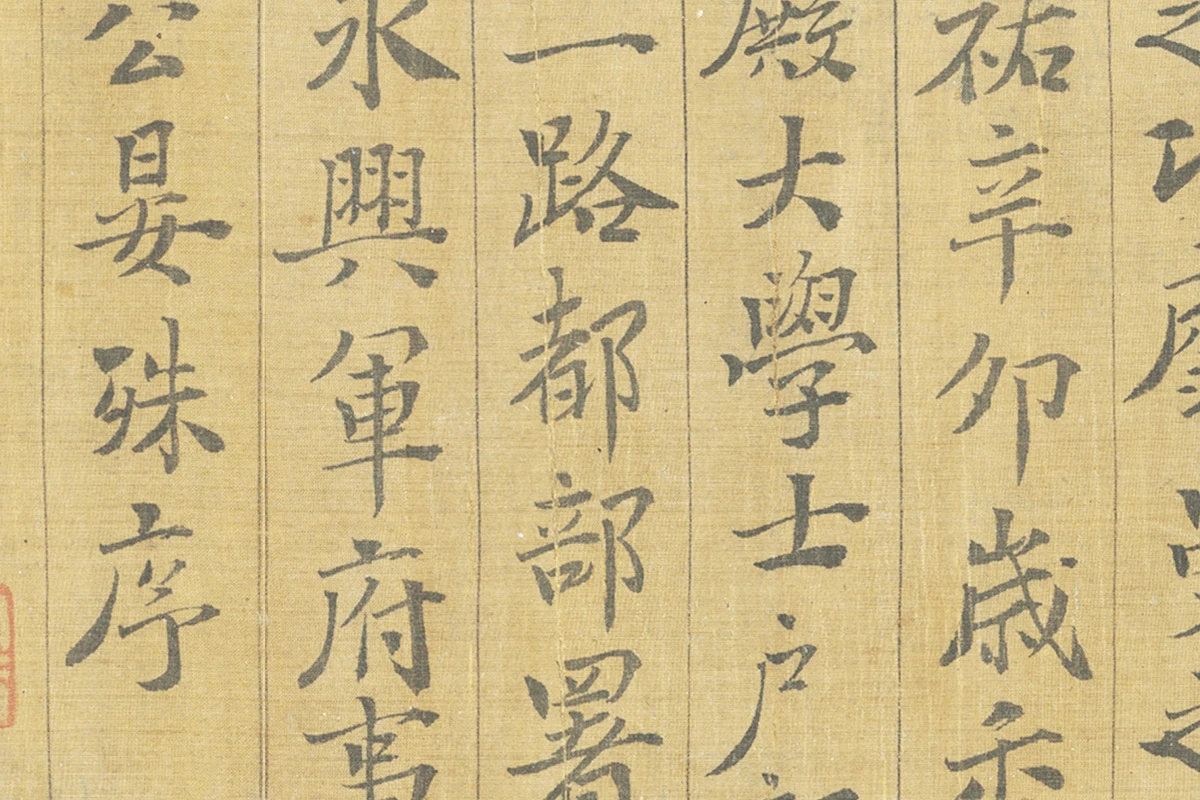 祐辛卯歲
殿大學士户
一路都部署
永興軍府事
公晏殊序